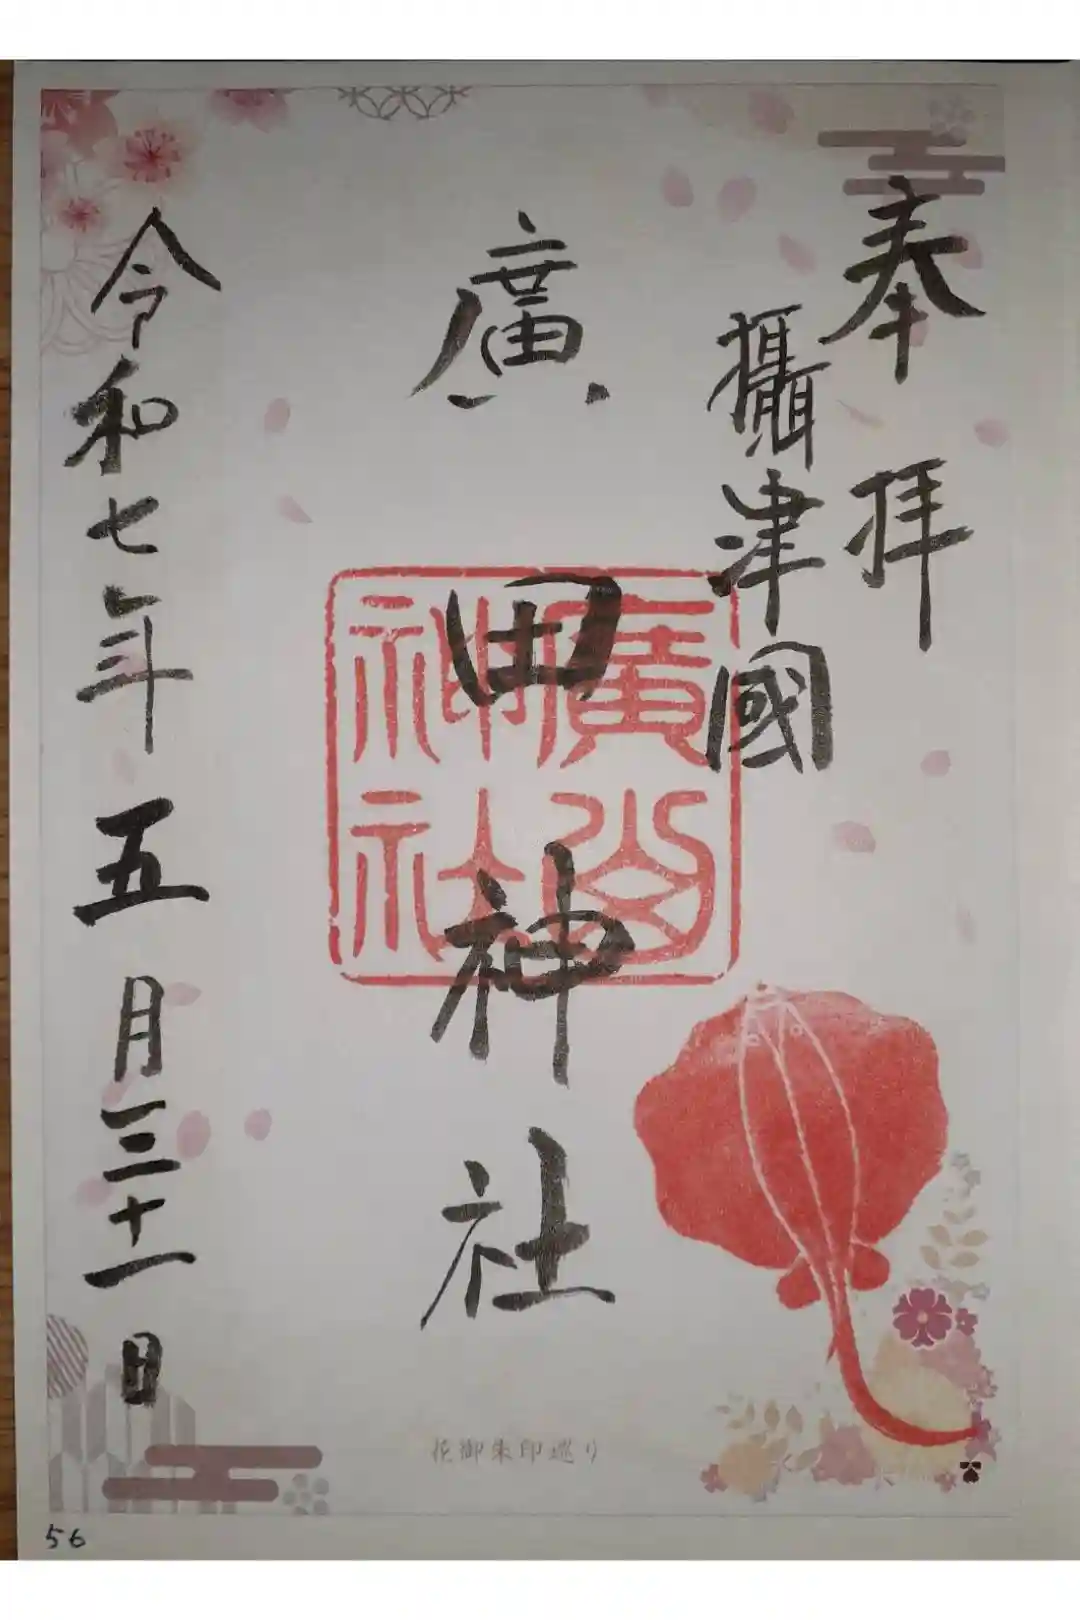 奉拝
攝津國
廣田神社
廣
神社
令和七年五月三十一日
花御朱印巡り
56